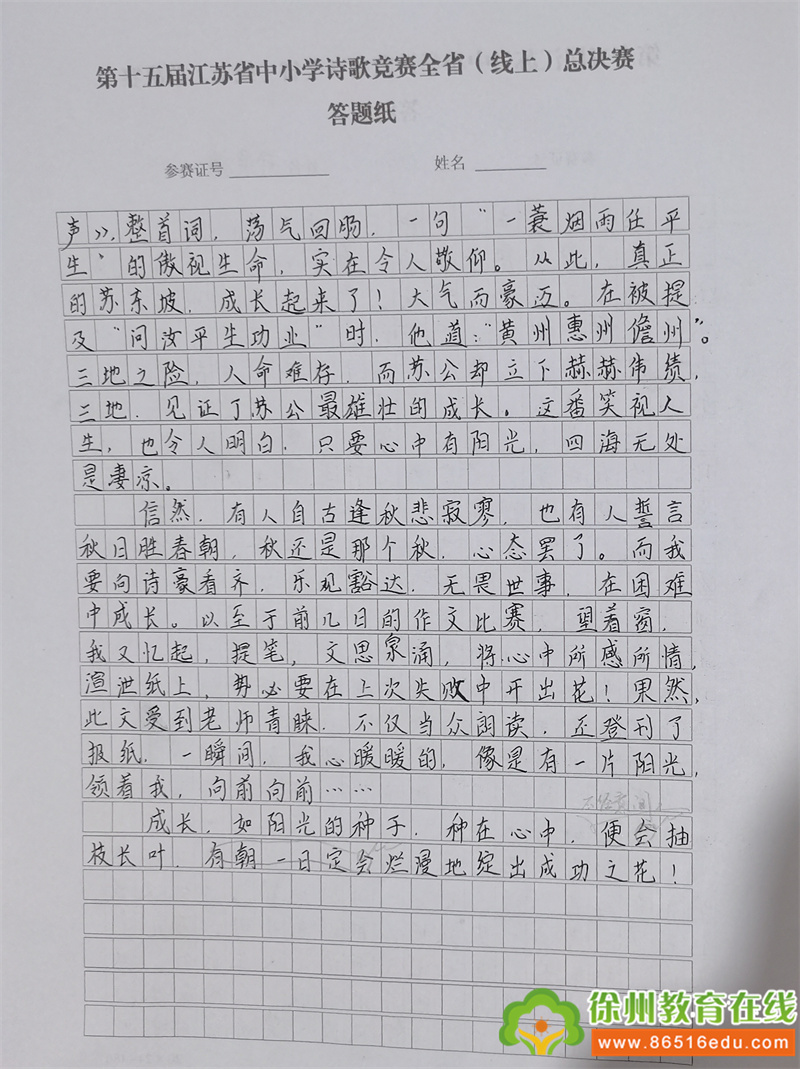 第十五届江苏省中小学诗歌竞赛全省（线上）总决赛
答题纸
参赛证号
姓名
声》，整首词，荡气回肠，一句“一蓑烟雨任平
生”的傲视生命，实在令人敬仰。从此，真正
的苏东坡，成长起来了！大气而豪迈。在被提
及“问汝平生功业”时，他道：“黄州惠州儋州”。
三地之险，人命难存，而苏公却立下赫赫伟绩，
三地，见证了苏公最雄壮的成长。这番笑视人
生，也令人明白，只要心中有阳光，四海无处
是凄凉。
信然，有人自古逢秋悲寂寥，也有人誓言
秋日胜春朝，秋还是那个秋，心态罢了。而我
要向诗豪看齐，乐观豁达，无畏世事，在困难
中成长。以至于前几日的作文比赛，望着窗，
我又忆起，提笔，文思泉涌，将心中所感所情，
渲泄纸上，势必要在上次失败中开出花！果然，
此文受到老师青睐，不仅当众朗读，还登刊了
报纸，一瞬间，我心暖暖的，像是有一片阳光，
领着我，向前向前……
成长，如阳光的种子，种在心中，便会抽
枝长叶，有朝一日定会烂漫地绽出成功之花！
徐州教育在线
www.86516edu.com